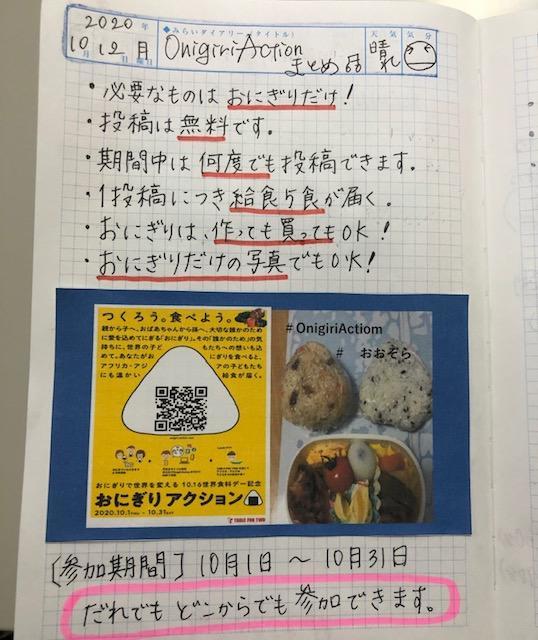 2020年
10月12日月曜日
◆みらいダイアリー(タイトル)
OnigiriAction
まとめ
天気 気分
晴れ
・必要なものはおにぎりだけ!
・投稿は無料です。
・期間中は何度でも投稿できます。
・1投稿につき給食5食が届く。
・おにぎりは、作っても買ってもOK!
・おにぎりだけの写真でもOK!
つくろう。食べよう。
親から子へ、おばあちゃんから孫へ、大切な誰かのため
に愛を込めてにぎる「おにぎり」。その「誰かのため」の気
持ちに、世界の子ど
もたちへの想いも込
めて。あなたがお
にぎりを食べると、
アフリカ・アジ
アの子どもたち
にも温かい
給食が届く。
おにぎりで世界を変える 10.16世界食料デー記念
おにぎりアクション
2020.10.1THU - 10.31SAT
TABLE FOR TWO
#OnigiriActiom
# おおぞら
[参加期間] 10月1日 〜 10月31日
だれでも どこからでも 参加できます。